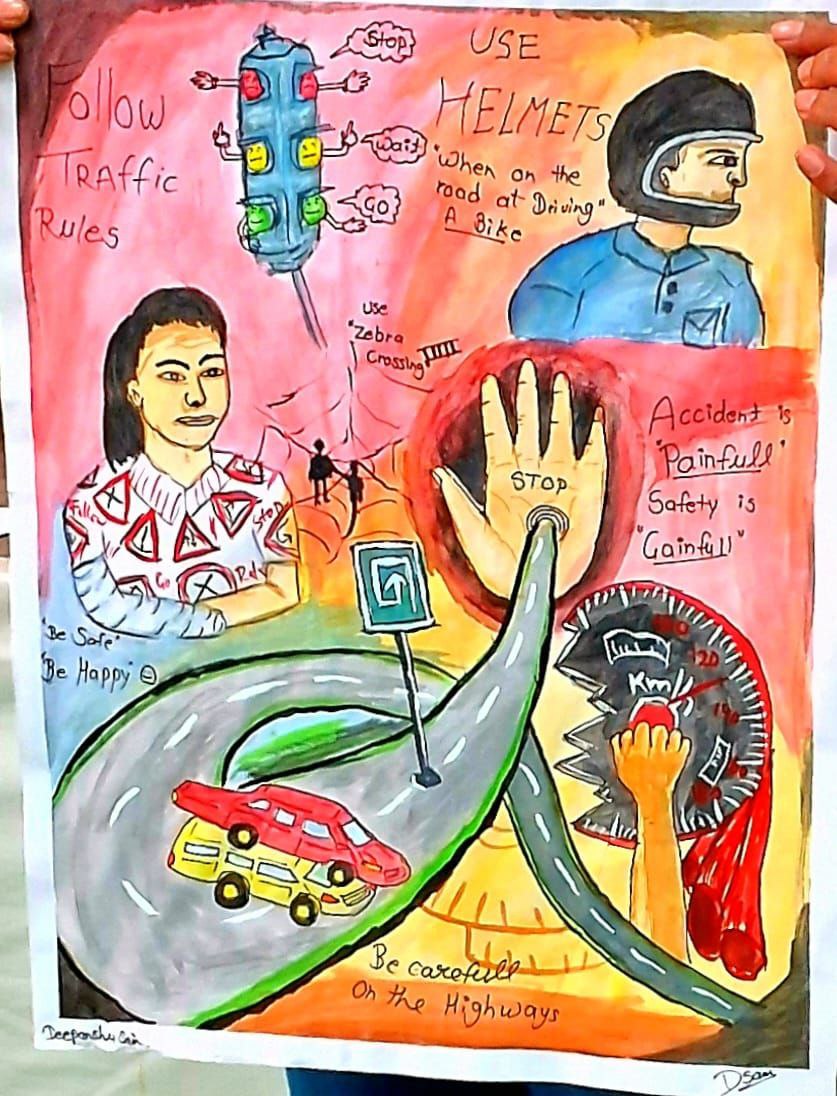 Follow
Traffic
Rules
Stop
Wait
GO
USE
HELMETS
"When on the
road at Driving"
A Bike
use
"Zebra
Crossing
STOP
Accident is
"Painfull"
Safety is
"Gainfull"
Follow
Stop
Go
"Be Safe"
"Be Happy"
120
Km/h
Be carefull
On the Highways
Deepanshu